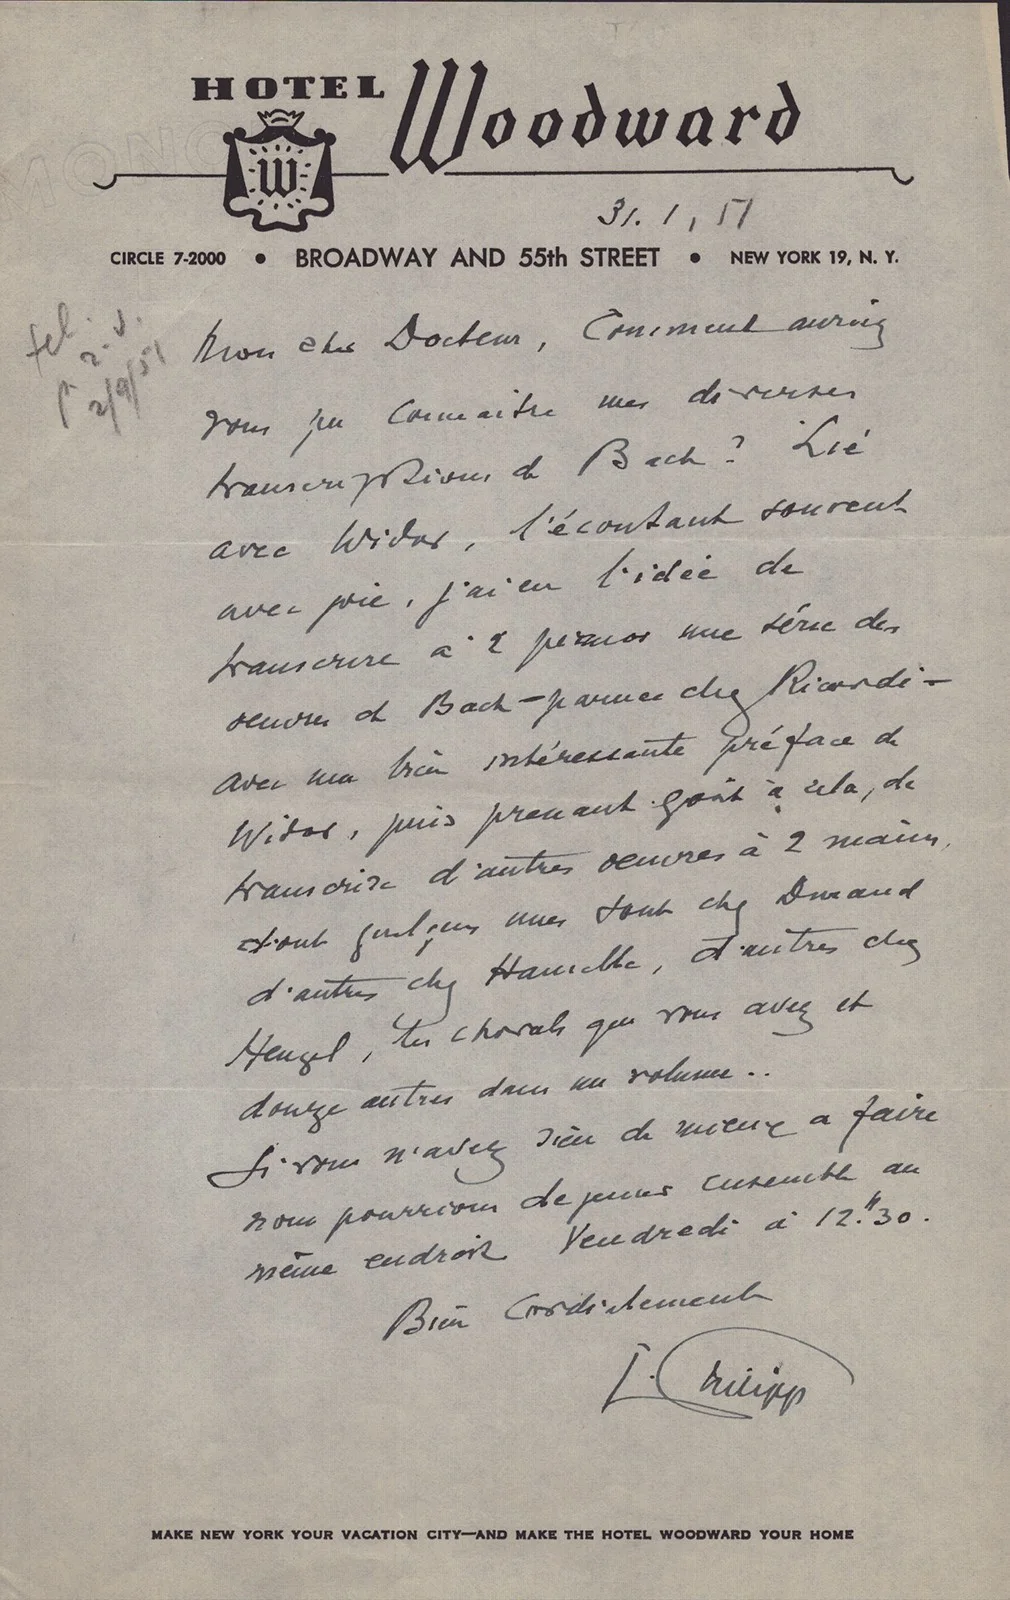 HOTEL Woodward
W
31. 1, 51
CIRCLE 7-2000 • BROADWAY AND 55th STREET • NEW YORK 19, N. Y.
tel.
2/9/51
Mon cher Docteur, Comment auriez
vous pu connaitre mes diverses
transcriptions de Bach? Lié
avec Widor, l'écoutant souvent
avec joie, j'ai eu l'idée de
transcrire à 2 pianos une série des
oeuvres de Bach - parues chez Ricordi -
avec une bien intéressante préface de
Widor, puis prenant goût à cela, de
transcrire d'autres oeuvres à 2 mains,
dont quelques unes sont chez Durand
d'autres chez Hamelle, d'autres chez
Heugel, les chorals que vous avez et
douze autres dans un volume..
Si vous n'avez rien de mieux a faire
nous pourrions dejeuner ensemble au
même endroit Vendredi à 12.h30.
Bien Cordialement
I. Philipp
MAKE NEW YORK YOUR VACATION CITY—AND MAKE THE HOTEL WOODWARD YOUR HOME